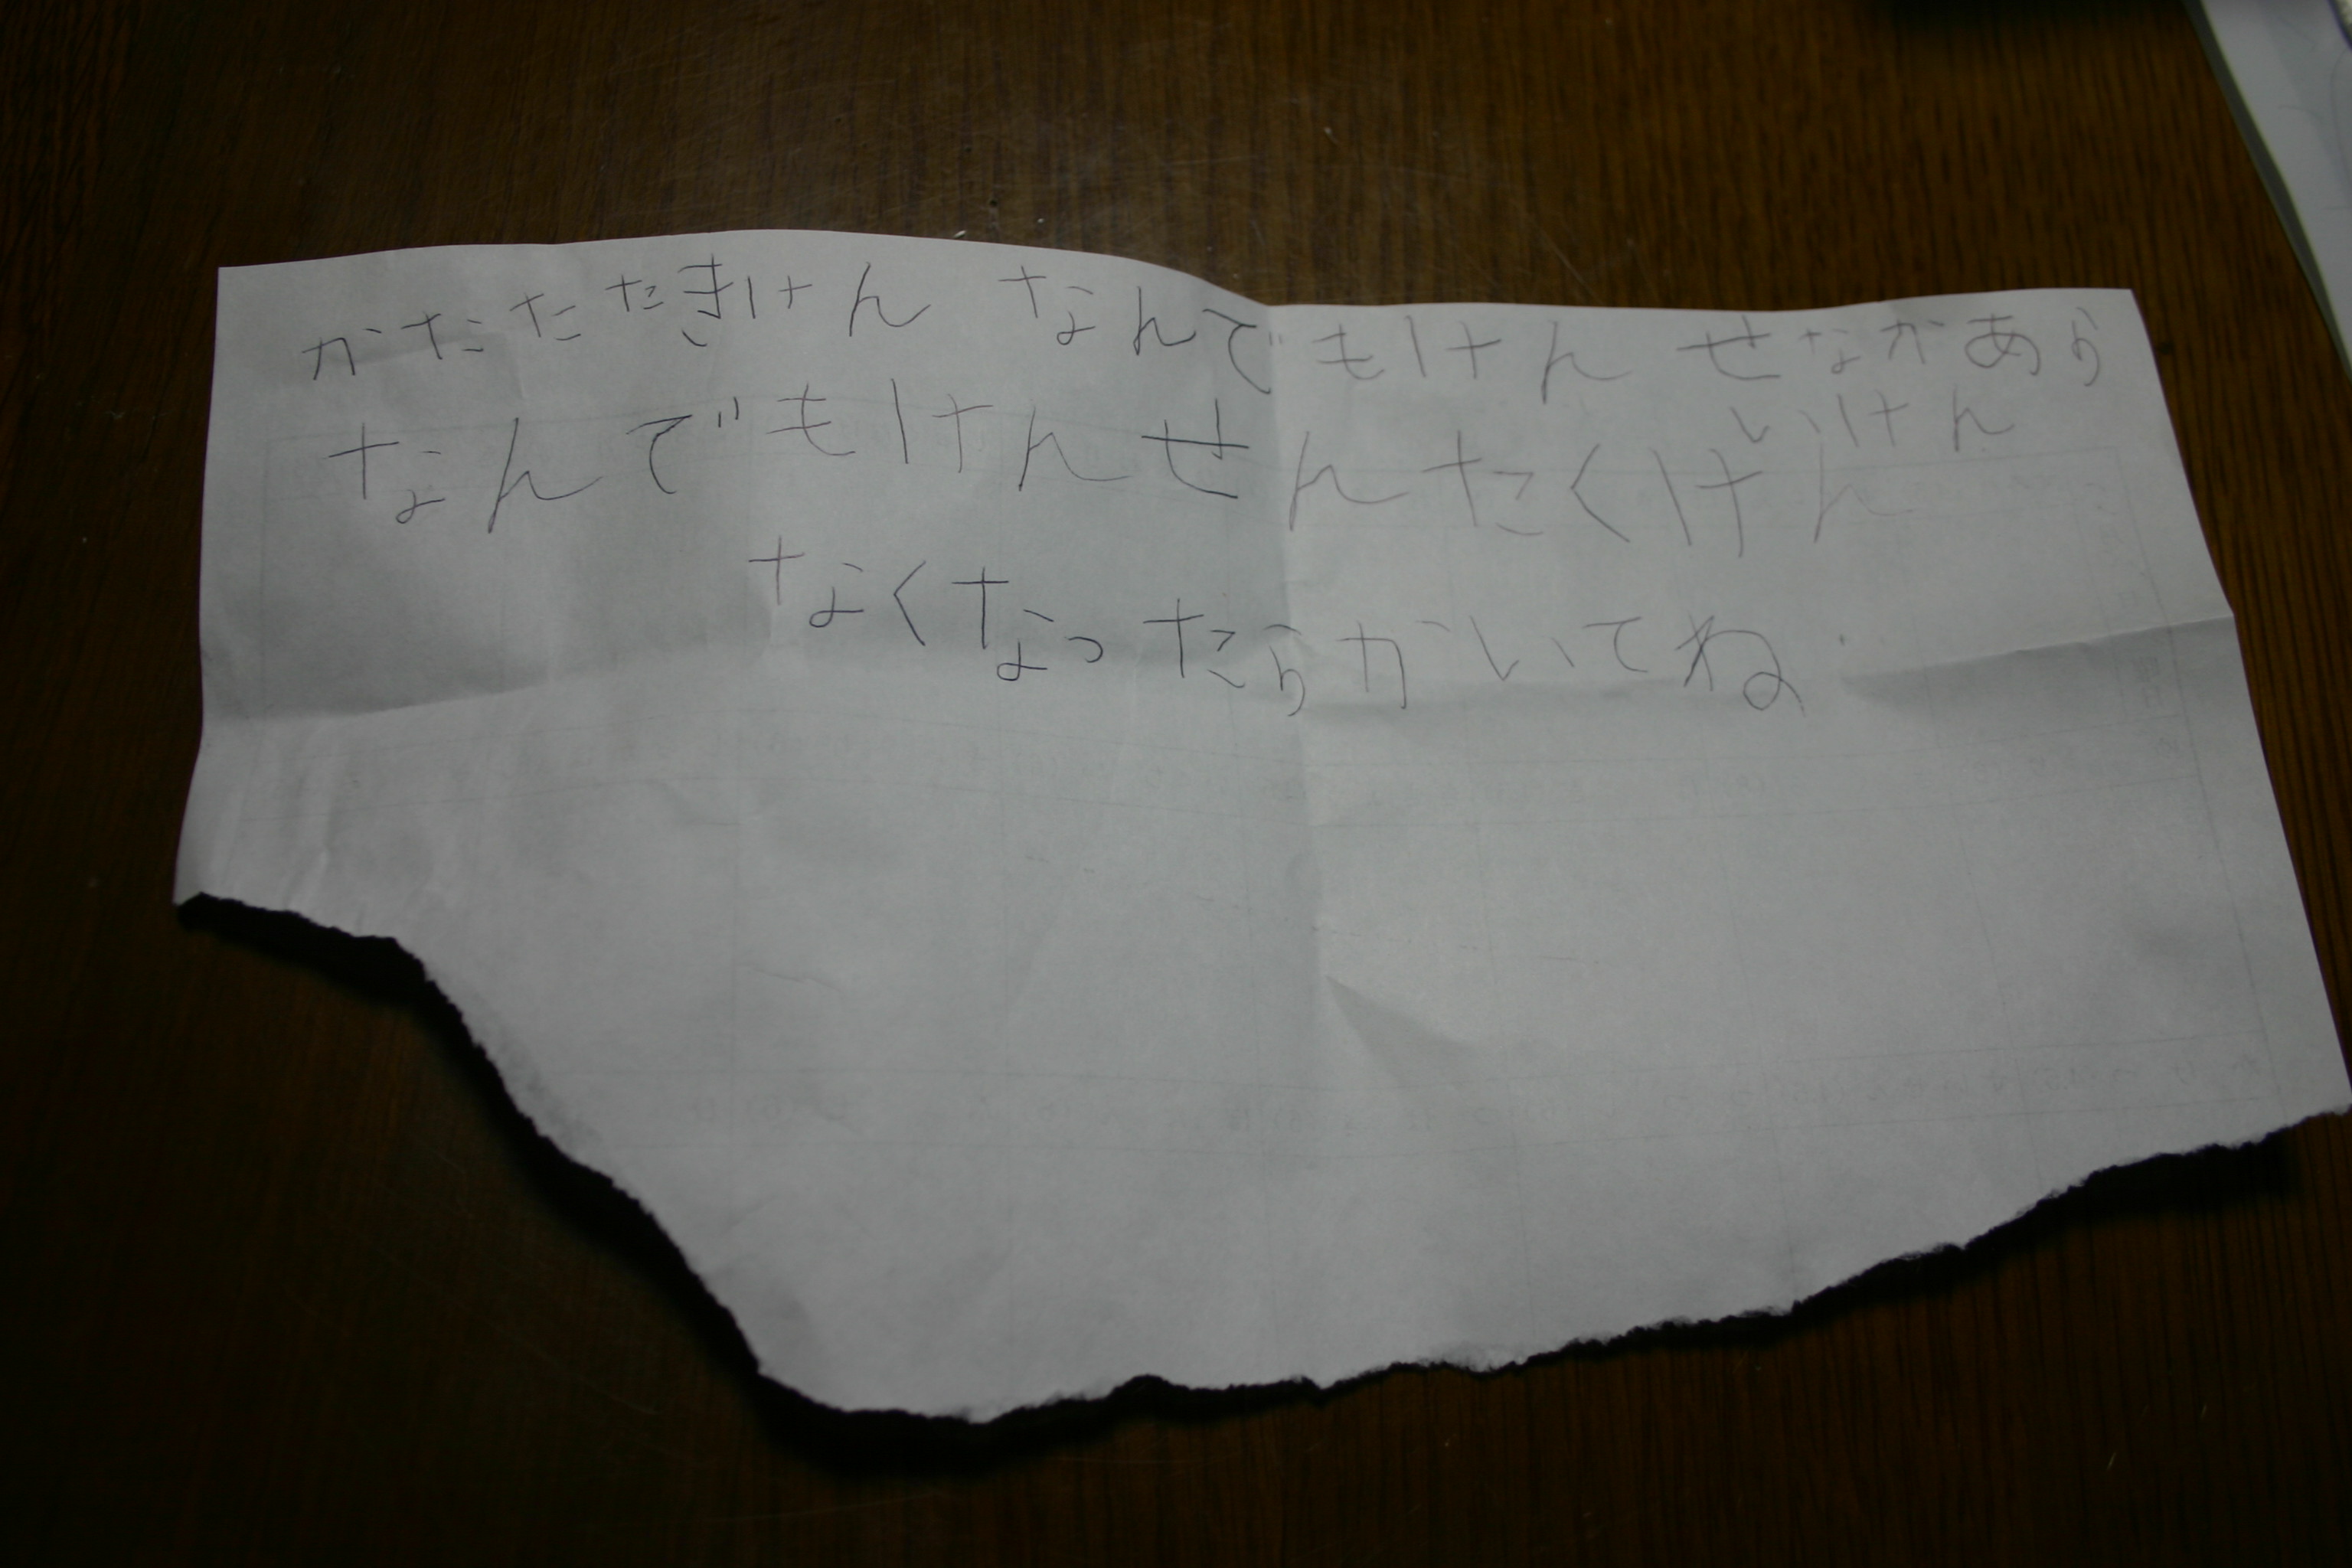 かたたたきけん なんでもけん せなかあら
いけん
なんでもけんせんたくけん
なくなったらかいてね